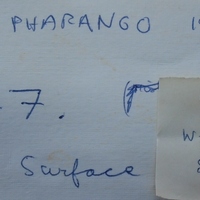 PHARANGO 1
-7.
W
Surface